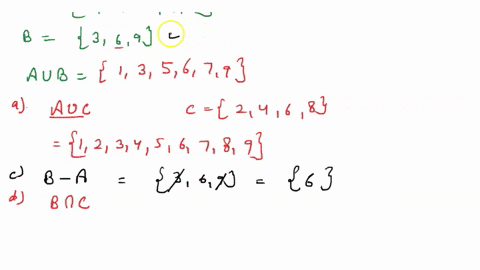 B = {3, 6, 9}
A∪B = {1, 3, 5, 6, 7, 9}
a) A∪C C = {2, 4, 6, 8}
= {1, 2, 3, 4, 5, 6, 7, 8, 9}
c) B - A = {3, 6, 9} = {6}
b) B∩C